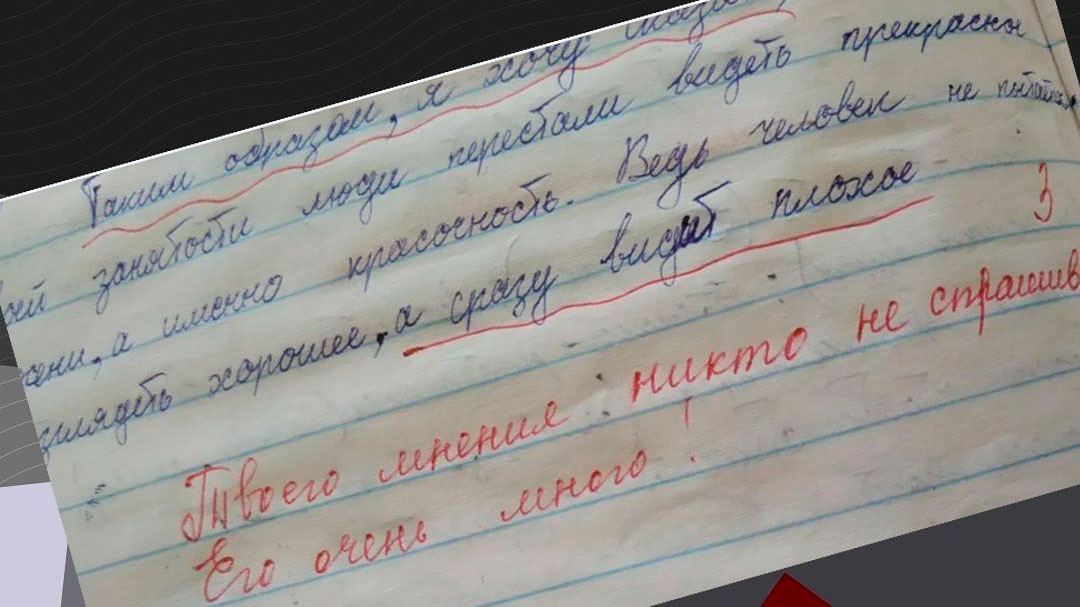 Таким образом, я хочу
занятости люди перестали видеть прекрасны
а именно красочность. Ведь человек не пытает
глядеть хорошее, а сразу видит плохое
3
Твоего мнения никто не спрашив
Его очень много!